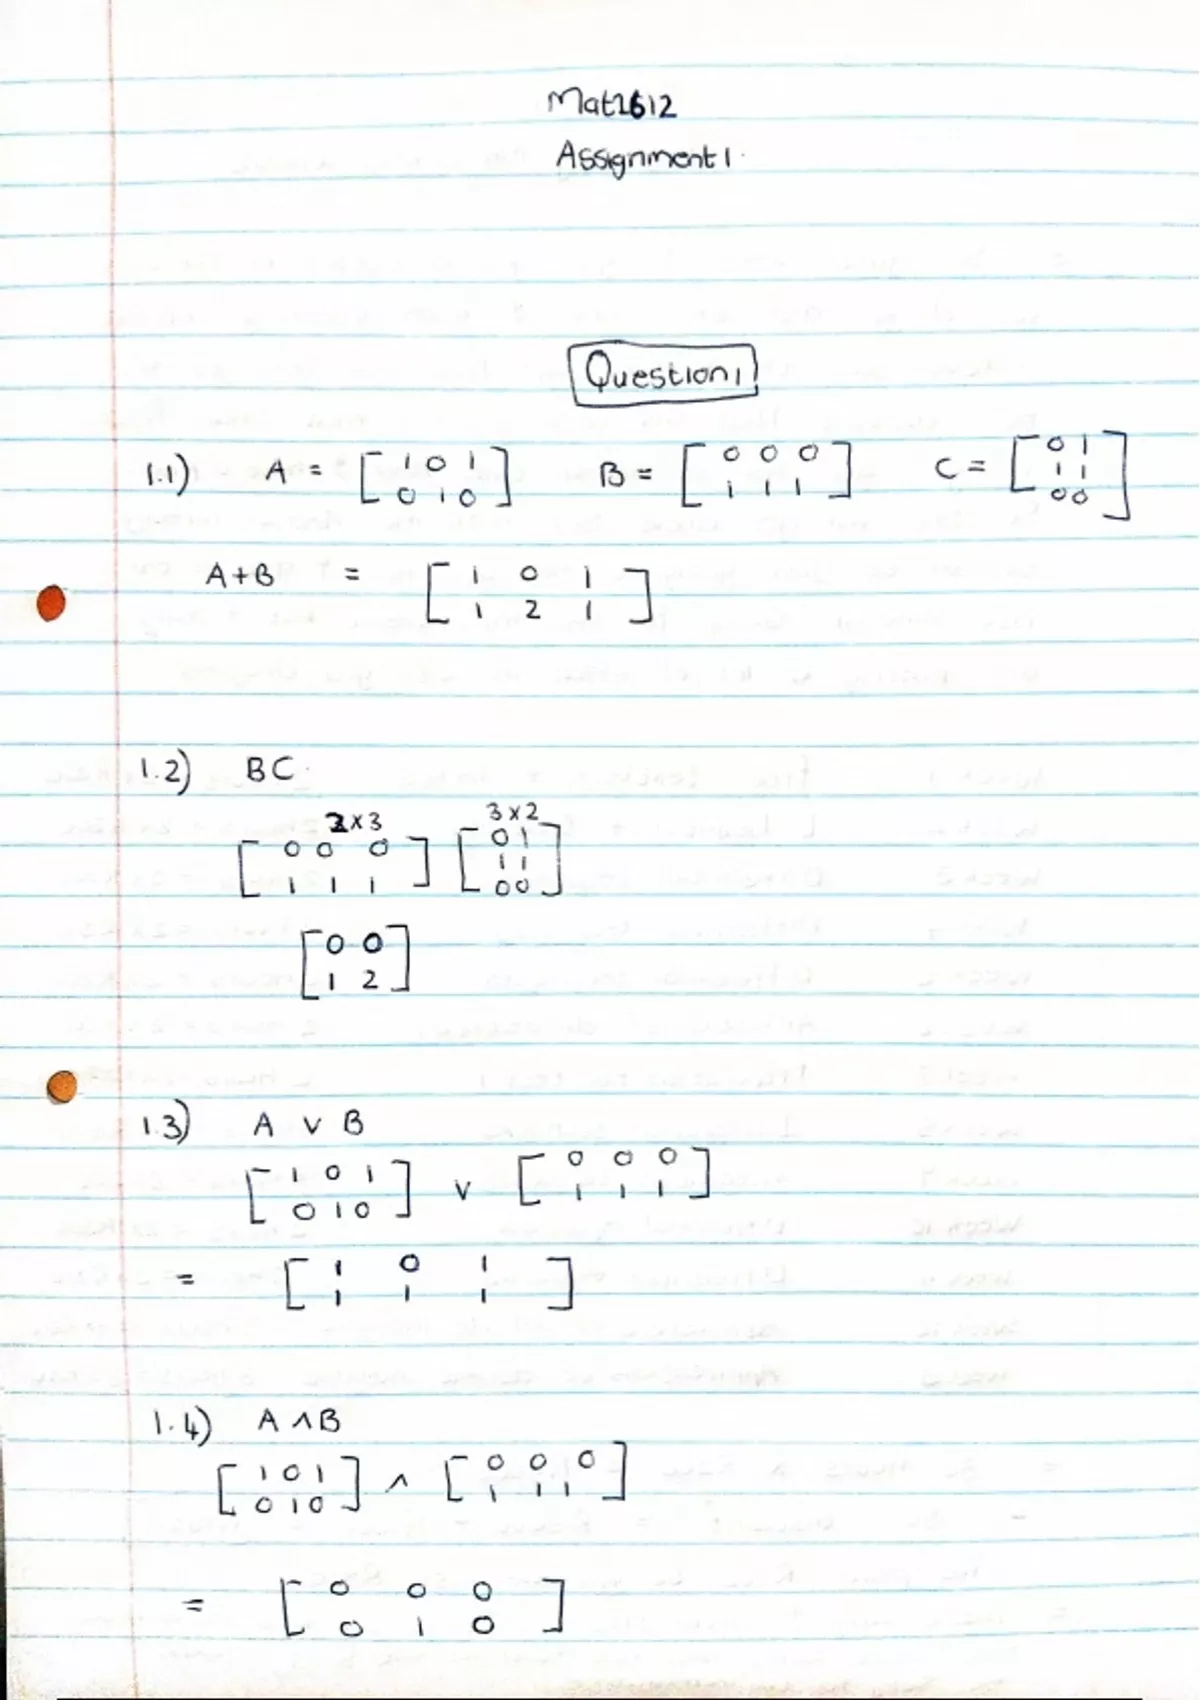 Mat1612
Assignment 1.
Question 1
1.1) A = [ 1 0 1 ] B = [ 0 0 0 ] C = [ 0 1 ]
0 1 0 1 1 1 1 1
0 0
A+B = [ 1 0 1 ]
1 2 1
1.2) BC.
2x3 3x2
[ 0 0 0 ] [ 0 1 ]
1 1 1 1 1
0 0
[ 0 0 ]
1 2
1.3) A ∨ B
[ 1 0 1 ] ∨ [ 0 0 0 ]
0 1 0 1 1 1
= [ 1 0 1 ]
1 1 1
1.4) A ∧ B
[ 1 0 1 ] ∧ [ 0 0 0 ]
0 1 0 1 1 1
= [ 0 0 0 ]
0 1 0